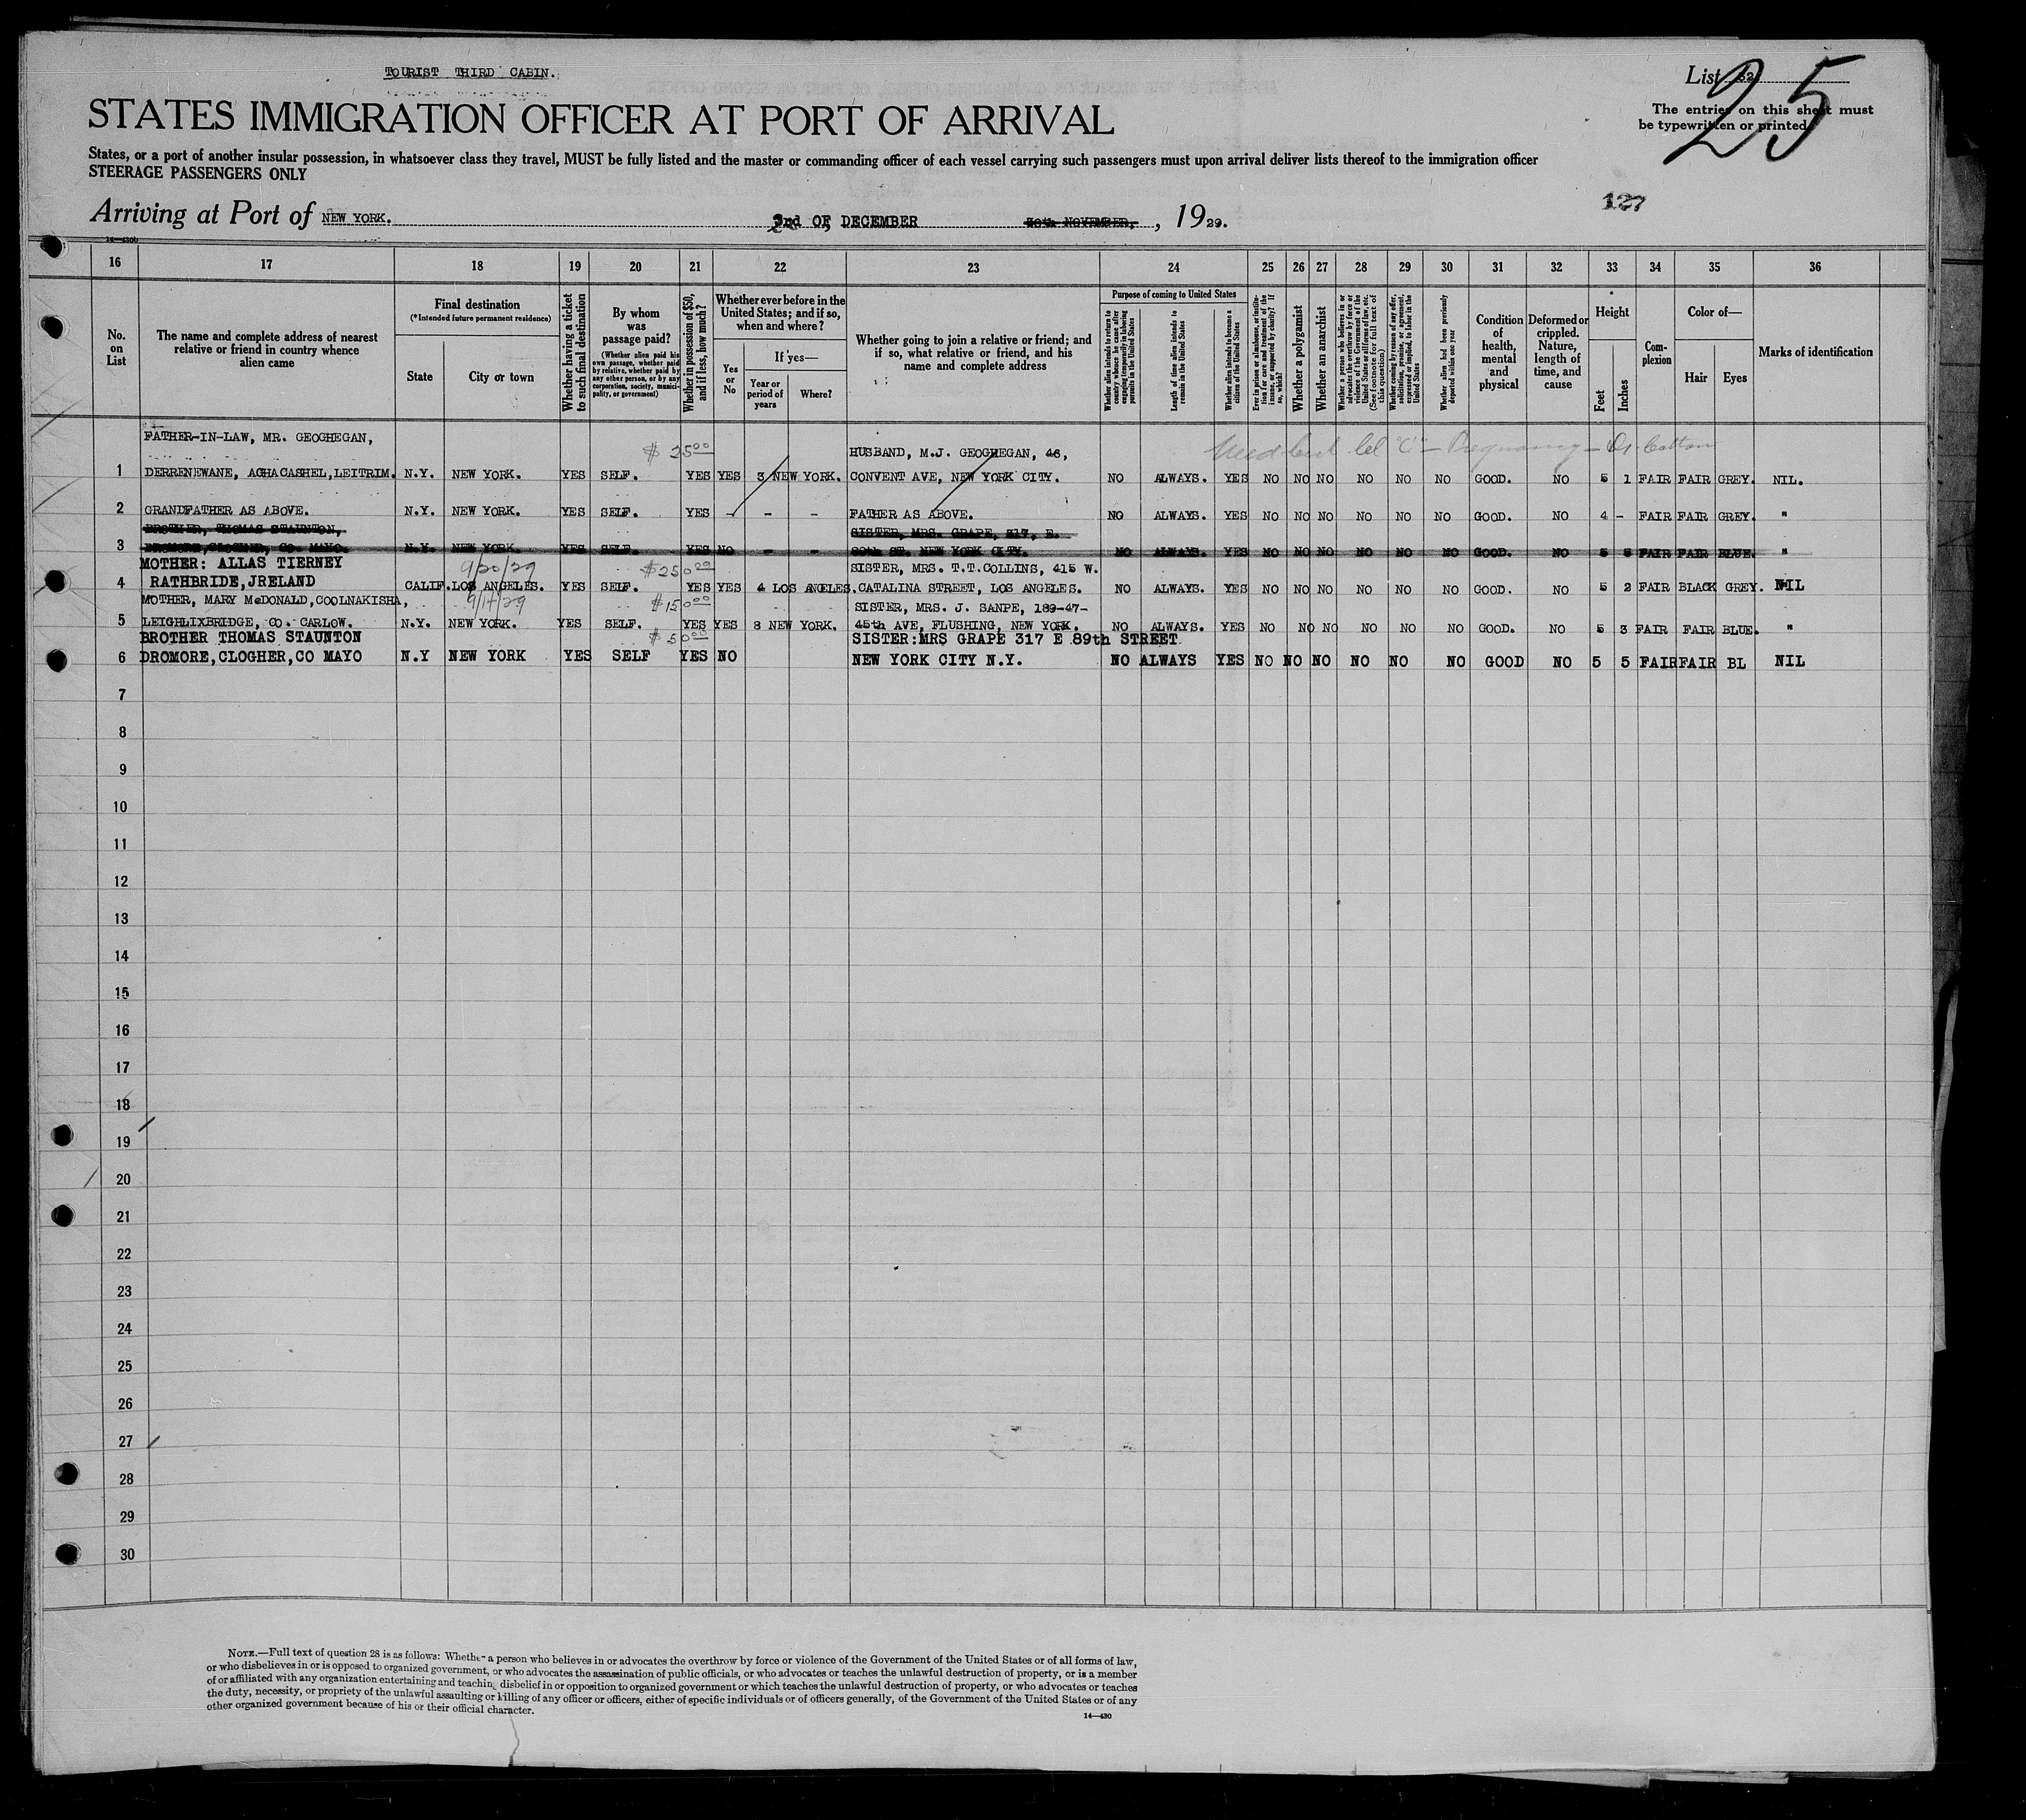 TOURIST THIRD CABIN.
List 52
25
STATES IMMIGRATION OFFICER AT PORT OF ARRIVAL
The entries on this sheet must
be typewritten or printed.
States, or a port of another insular possession, in whatsoever class they travel, MUST be fully listed and the master or commanding officer of each vessel carrying such passengers must upon arrival deliver lists thereof to the immigration officer
STEERAGE PASSENGERS ONLY
127
Arriving at Port of NEW YORK. 3rd OF DECEMBER 30th NOVEMBER, , 19 29.
14—430b
16 17 18 19 20 21 22 23 24 25 26 27 28 29 30 31 32 33 34 35 36
No. on List
The name and complete address of nearest relative or friend in country whence alien came
Final destination
(*Intended future permanent residence)
State
City or town
Whether having a ticket to such final destination
By whom was passage paid?
(Whether alien paid his own passage, whether paid by relative, whether paid by any other person, or by any corporation, society, municipality, or government)
Whether in possession of $50, and if less, how much?
Whether ever before in the United States; and if so, when and where?
Yes or No
If yes—
Year or period of years
Where?
Whether going to join a relative or friend; and if so, what relative or friend, and his name and complete address
Purpose of coming to United States
Whether alien intends to return to country whence he came after engaging temporarily in laboring pursuits in the United States
Length of time alien intends to remain in the United States
Whether alien intends to become a citizen of the United States
Ever in prison or almshouse, or institution for care and treatment of the insane, or supported by charity? If so, which?
Whether a polygamist
Whether an anarchist
Whether a person who believes in or advocates the overthrow by force or violence of the Government of the United States or all forms of law, etc. (See footnote for full text of this question)
Whether coming by reason of any offer, solicitation, promise, or agreement, expressed or implied, to labor in the United States
Whether alien had been previously deported within one year
Condition of health, mental and physical
Deformed or crippled. Nature, length of time, and cause
Height
Feet
Inches
Complexion
Color of—
Hair
Eyes
Marks of identification
FATHER-IN-LAW, MR. GEOGHEGAN, $ 25 00 HUSBAND, M.J. GEOGHEGAN, 46, "C" — Pregnancy — Dr
1 DERRENEWANE, AGHACASHEL, LEITRIM. N.Y. NEW YORK. YES SELF. YES YES 3 NEW YORK. CONVENT AVE, NEW YORK CITY. NO ALWAYS. YES NO NO NO NO NO NO GOOD. NO 5 1 FAIR FAIR GREY. NIL.
2 GRANDFATHER AS ABOVE. N.Y. NEW YORK. YES SELF. YES - - - FATHER AS ABOVE. NO ALWAYS. YES NO NO NO NO NO NO GOOD. NO 4 - FAIR FAIR GREY. "
BROTHER, THOMAS STAUNTON, SISTER, MRS. GRAPE, 317, E.
3 DROMORE, CLOGHER, CO. MAYO. N.Y. NEW YORK. YES SELF. YES NO - - 89th ST. NEW YORK CITY. NO ALWAYS. YES NO NO NO NO NO NO GOOD. NO 5 5 FAIR FAIR BLUE. "
MOTHER: ALLAS TIERNEY 9/20/29 $ 250 00 SISTER, MRS. T.T.COLLINS, 415 W.
4 RATHBRIDE, JRELAND CALIF. LOS ANGELES. YES SELF. YES YES 4 LOS ANGELES. CATALINA STREET, LOS ANGELES. NO ALWAYS. YES NO NO NO NO NO NO GOOD. NO 5 2 FAIR BLACK GREY. NIL
MOTHER, MARY McDONALD, COOLNAKISHA, 9/17/29 $ 150 00 SISTER, MRS. J. SANPE, 189-47-
5 LEIGHLIXBRIDGE, CO. CARLOW. N.Y. NEW YORK. YES SELF. YES YES 8 NEW YORK. 45th AVE, FLUSHING, NEW YORK. NO ALWAYS. YES NO NO NO NO NO NO GOOD. NO 5 3 FAIR FAIR BLUE. "
BROTHER THOMAS STAUNTON $ 50 00 SISTER:MRS GRAPE 317 E 89th STREET
6 DROMORE,CLOGHER,CO MAYO N.Y NEW YORK YES SELF YES NO NEW YORK CITY N.Y. NO ALWAYS YES NO NO NO NO NO NO GOOD NO 5 5 FAIR FAIR BL NIL
7
8
9
10
11
12
13
14
15
16
17
18
19
20
21
22
23
24
25
26
27
28
29
30
NOTE.—Full text of question 28 is as follows: Whether a person who believes in or advocates the overthrow by force or violence of the Government of the United States or of all forms of law,
or who disbelieves in or is opposed to organized government, or who advocates the assassination of public officials, or who advocates or teaches the unlawful destruction of property, or is a member
of or affiliated with any organization entertaining and teaching disbelief in or opposition to organized government or which teaches the unlawful destruction of property, or who advocates or teaches
the duty, necessity, or propriety of the unlawful assaulting or killing of any officer or officers, either of specific individuals or of officers generally, of the Government of the United States or of any
other organized government because of his or their official character.
14—430